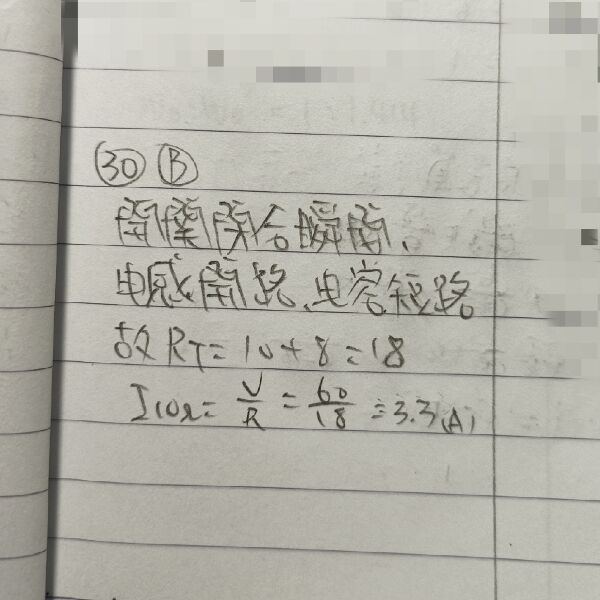 ㉚ Ⓑ
開關閉合瞬間、
电感開路、电容短路
故RT=10+8=18
I10Ω=V/R=60/18≒3.3(A)